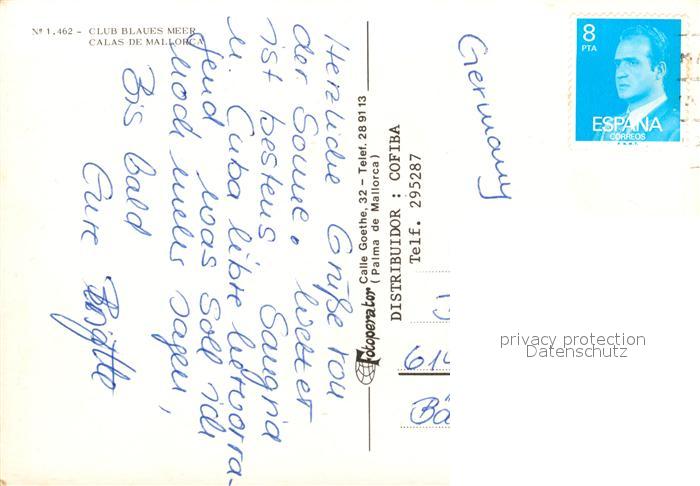 Nº 1.462 - CLUB BLAUES MEER
CALAS DE MALLORCA
Herzliche Grüße von
der Sonne. Wetter
ist bestens Sangria
u. Cuba libre hervorra-
gend was soll ich
noch mehr sagen,
Bis bald
Eure
Fotoperator Calle Goethe, 32 - Telef. 28 91 13
(Palma de Mallorca)
DISTRIBUIDOR : COFIBA
Telf. 295287
Germany
8
PTA
ESPAÑA
CORREOS
F.N.M.T.
61
Bä
privacy protection
Datenschutz